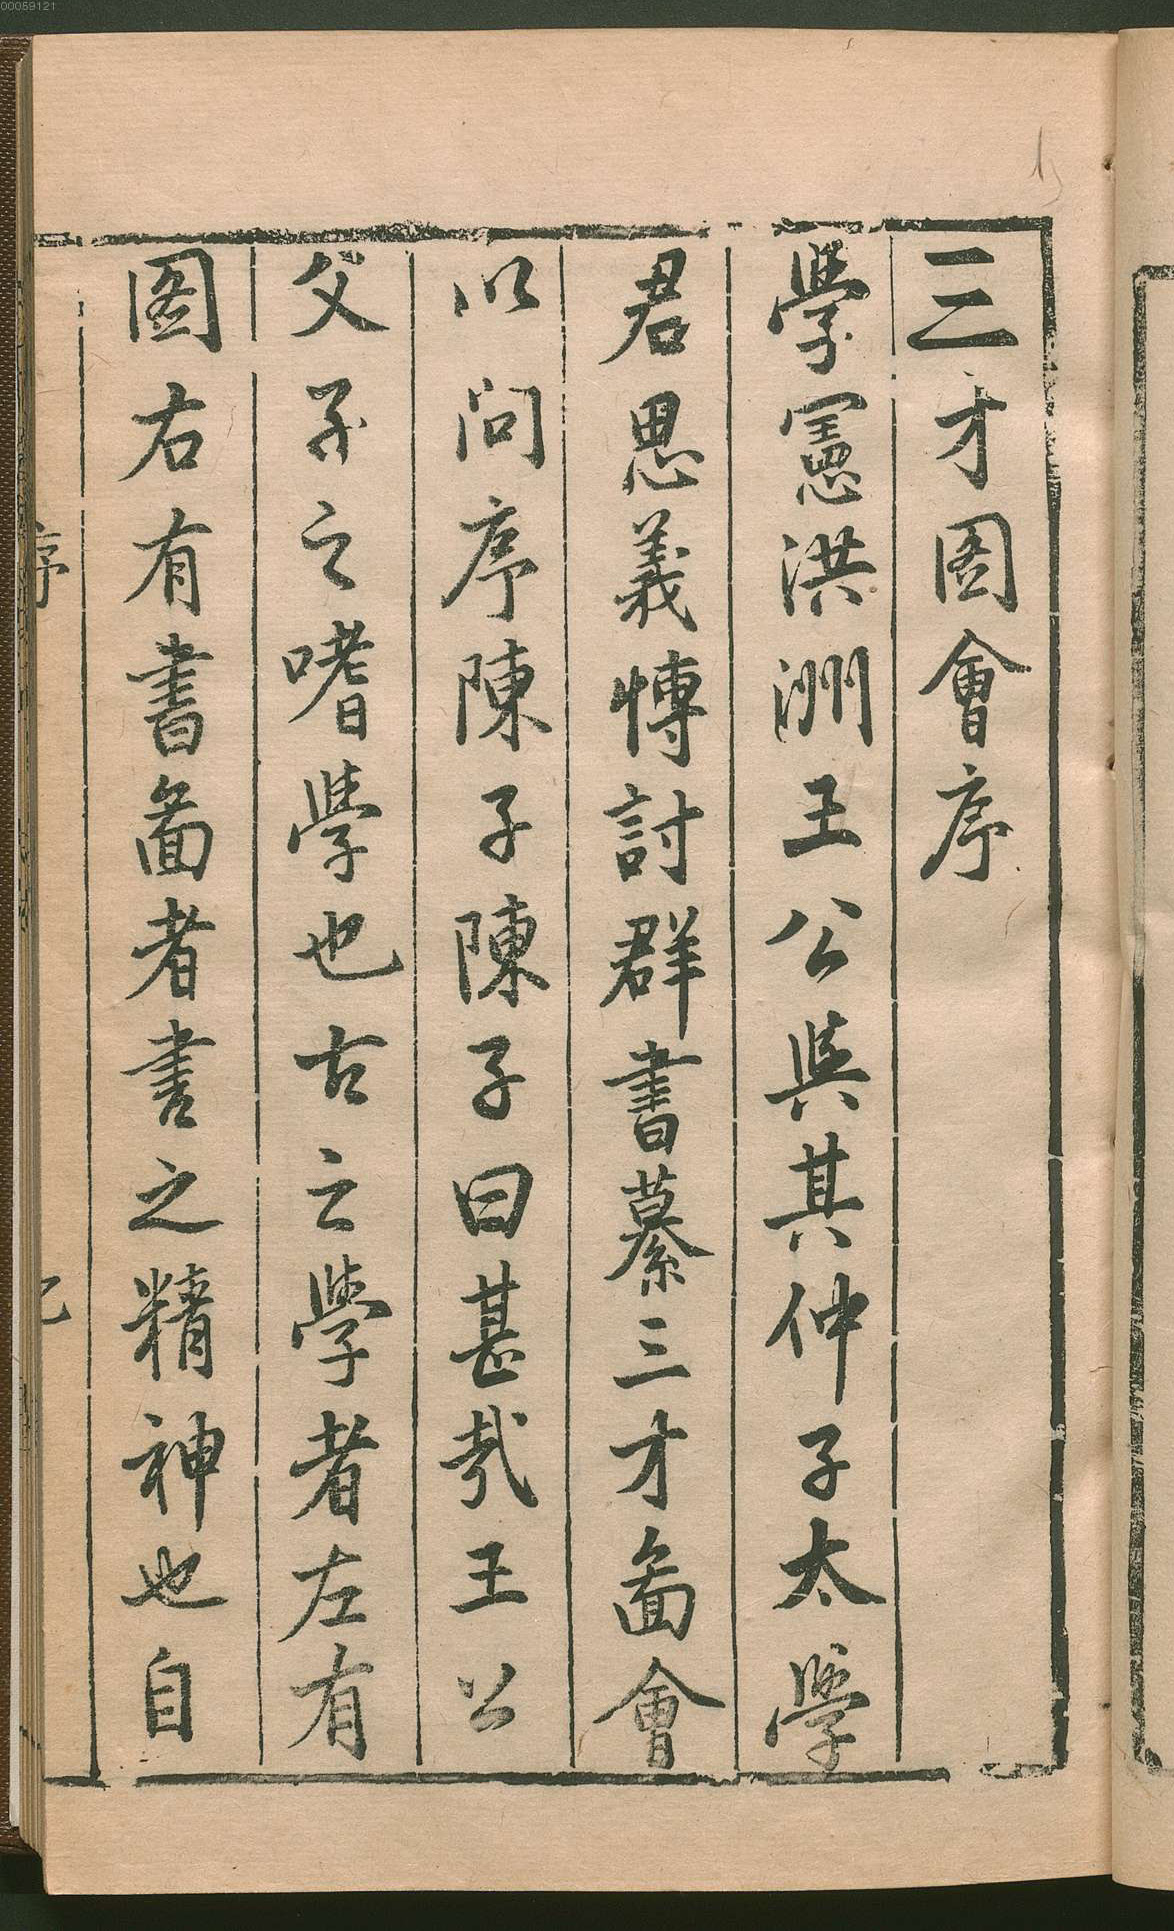 三才图會序
學憲洪洲王公與其仲子太學
君思義博討群書纂三才啚會
以問序陳子陳子曰甚哉王公
父子之嗜學也古之學者左有
图右有書啚者書之精神也自
序
00059121